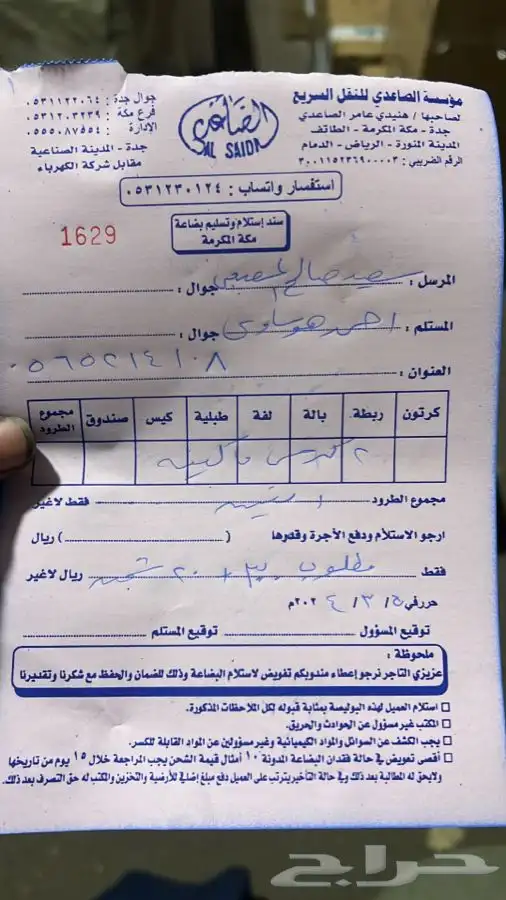 مؤسسة الصاعدي للنقل السريع
لصاحبها / هنيدي عامر الصاعدي
جدة - مكة المكرمة - الطائف
المدينة المنورة - الرياض - الدمام
الرقم الضريبي : ٣٠٠١١٥٢٣٦٩٠٠٠٠٣
AL SAIDI
جوال جدة : ٠٥٣١١٢٢٠٦٤
فرع مكة : ٠٥٣١٢٠٣٢٣٩
الإدارة : ٠٥٥٥٠٨٧٥٥٤
جدة - المدينة الصناعية
مقابل شركة الكهرباء
استفسار واتساب : ٠٥٣١٢٣٠١٢٤
سند إستلام وتسليم بضاعة
مكة المكرمة
1629
المرسل : سعيد صالح جوال :
المستلم : احمد هوساوي جوال :
العنوان : ٠٥٦٥٢١٤١٠٨
كرتون ربطة بالة لفة طبلية كيس صندوق مجموع الطرود
٢
مجموع الطرود فقط لاغير
ارجو الاستلام ودفع الأجرة وقدرها ( ) ريال
فقط مطلوب + ٢٠ شحن ريال لاغير
حرر في ٥ / ٣ / ٢٠٢٤م
توقيع المسؤول توقيع المستلم
ملحوظة :
عزيزي التاجر نرجو إعطاء مندوبكم تفويض لاستلام البضاعة وذلك للضمان والحفظ مع شكرنا وتقديرنا
استلام العميل لهذه البوليصة بمثابة قبوله لكل الملاحظات المذكورة.
المكتب غير مسؤول عن الحوادث والحريق.
يجب الكشف عن السوائل والمواد الكيميائية وغير مسؤولين عن المواد القابلة للكسر.
أقصى تعويض في حالة فقدان البضاعة المدونة ١٠ أمثال قيمة الشحن يجب المراجعة خلال ١٥ يوم من تاريخها
ولايحق له المطالبة بعد ذلك وفي حالة التأخير يترتب على العميل دفع مبلغ إضافي للأرضية والتخزين والمكتب له حق التصرف بعد ذلك.
حراج